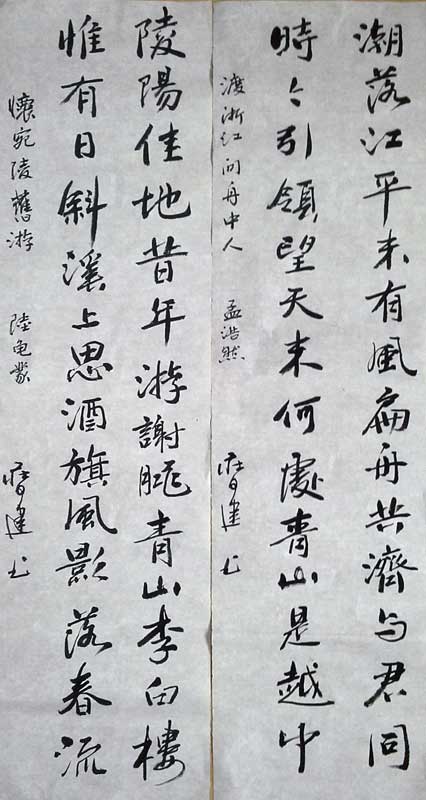 潮落江平未有風扁舟共濟与君同
時々引領望天末何處青山是越中
渡浙江问舟中人 孟浩然 建书
陵陽佳地昔年游謝朓青山李白樓
惟有日斜溪上思酒旗風影落春流
懷宛陵舊游 陸龟蒙 建书